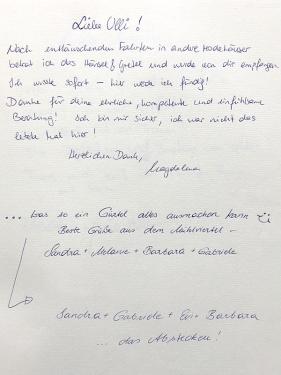 Liebe Ulli!
Nach enttäuschenden Fahrten in andere Modehäuser
betrat ich das Hänsel & Gretel und wurde von dir empfangen.
Ich wusste sofort – hier werde ich fündig!
Danke für deine ehrliche, kompetente und einfühlsame
Beratung! Ich bin mir sicher, ich war nicht das
letzte Mal hier!
Herzlichen Dank,
Magdalena
... was so ein Gürtel alles ausmachen kann
Beste Grüße aus dem Mühlviertel –
Sandra + Melanie + Barbara + Gabriele
Sandra + Gabriele + Evi + Barbara
... das Abstecken!